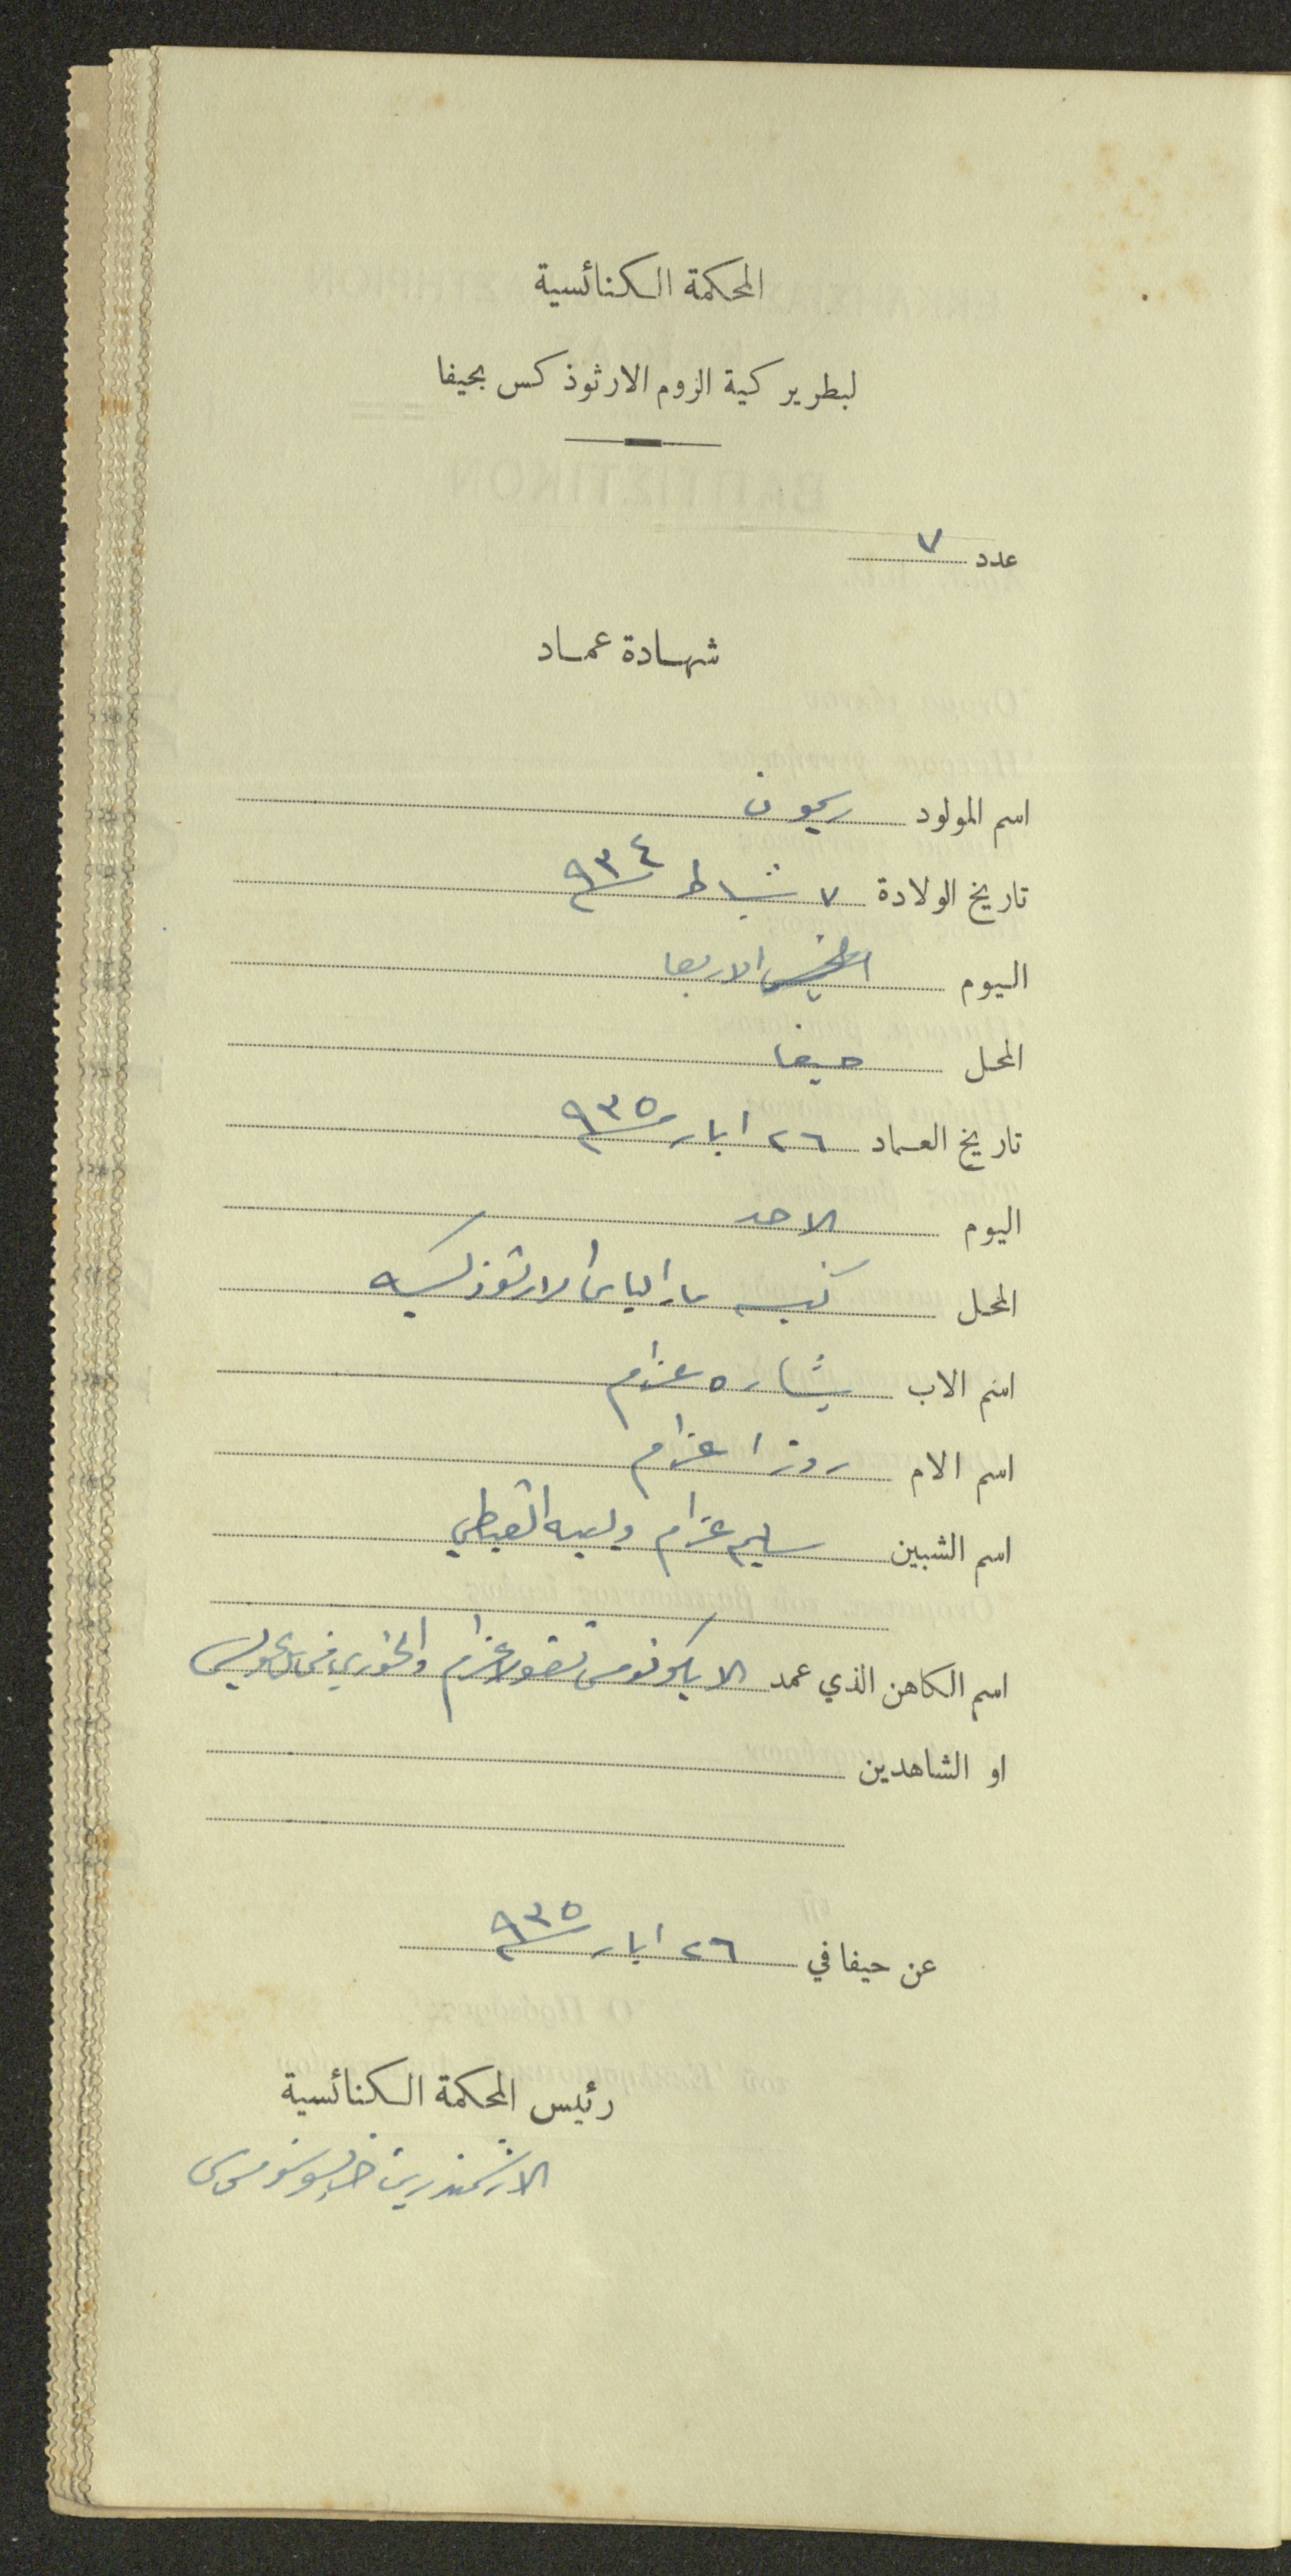 المحكمة الكنائسية
لبطريركية الروم الارثوذكس بحيفا
عدد ٧
شهادة عماد
اسم المولود ريمون
تاريخ الولادة ٧ شباط ٩٣٤
اليوم الخميس الاربعا
المحل حيفا
تاريخ العماد ٢٦ ايار ٩٣٥
اليوم الاحد
المحل كنيسه مار الياس الارثوذكسيه
اسم الاب بشاره عزام
اسم الام روزا عزام
اسم الشبين سليم عزام ولبيبه القبطي
اسم الكاهن الذي عمد الايكونومس نقولا عزام والخوري
او الشاهدين
عن حيفا في ٢٦ ايار ٩٣٥
رئيس المحكمة الكنائسية
الارشمندريت